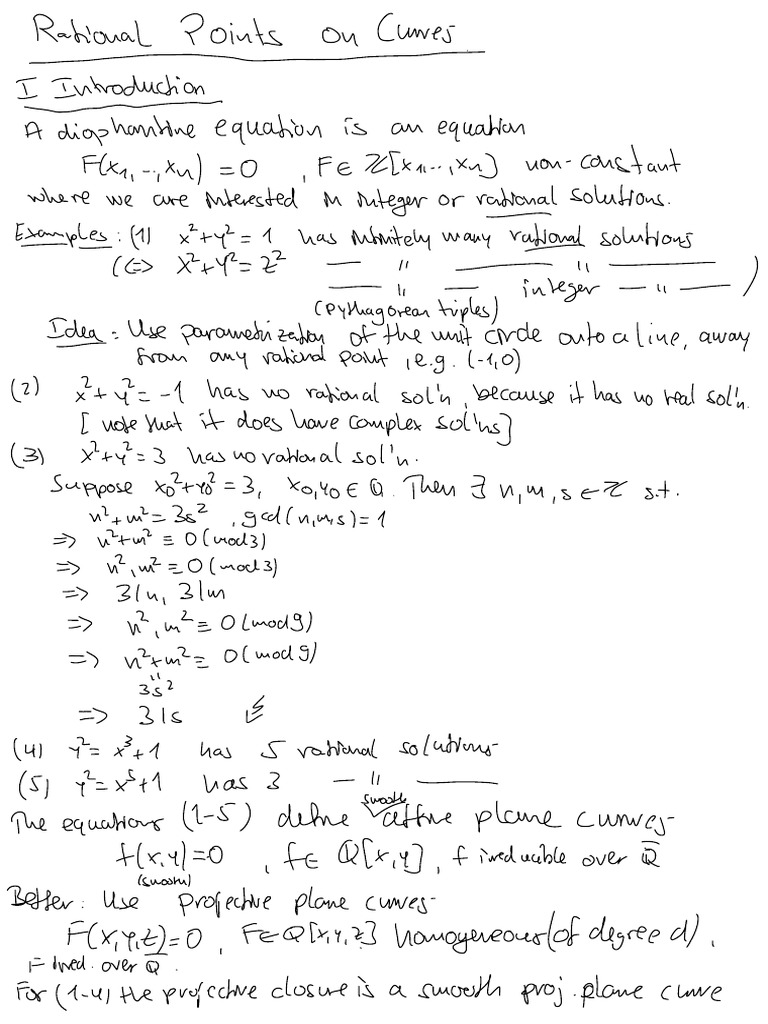 Rational Points on Curves
I Introduction
A diophantine equation is an equation
F(x₁,..,xₙ) = 0 , F∈ ℤ[x₁,..,xₙ] non-constant
where we are interested in integer or rational solutions.
Examples: (1) x²+y² = 1 has infinitely many rational solutions
(⇔ x²+y² = z² — " — — " —
— " — integer — " — )
(Pythagorean triples)
Idea: Use parametrization of the unit circle onto a line, away
from any rational point, e.g. (-1,0)
(2) x²+y² = -1 has no rational sol'n, because it has no real sol'n.
[note that it does have complex sol'ns]
(3) x²+y² = 3 has no rational sol'n.
Suppose x₀²+y₀² = 3, x₀,y₀ ∈ ℚ. Then ∃ n,m,s ∈ ℤ s.t.
n²+m² = 3s² , gcd(n,m,s)=1
=> n²+m² ≡ 0 (mod 3)
=> n², m² ≡ 0 (mod 3)
=> 3|n, 3|m
=> n², m² ≡ 0 (mod 9)
=> n²+m² ≡ 0 (mod 9)
"
3s²
=> 3|s ↯
(4) y² = x³+1 has 5 rational solutions
(5) y² = x⁵+1 has 3 — " —
The equations (1-5) define smooth affine plane curves
f(x,y)=0 , f∈ ℚ[x,y], f irreducible over ℚ̅
(smooth)
Better: Use projective plane curves
F(x,y,z)=0 , F∈ℚ[x,y,z] homogeneous (of degree d),
F irred. over ℚ̅.
For (1-4) the projective closure is a smooth proj. plane curve